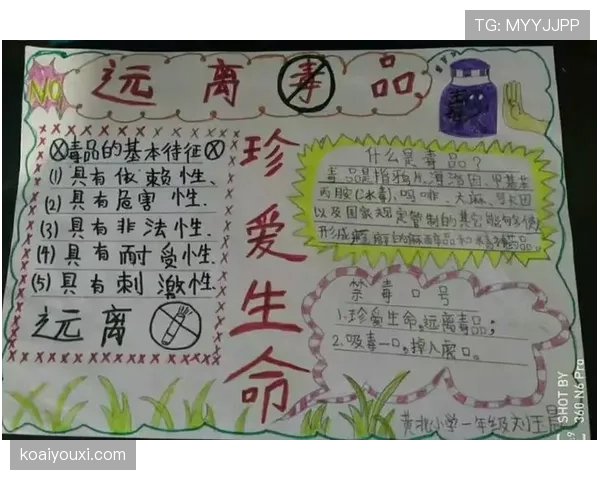 TG: MYYJJPP
NO
远离毒品
毒品的基本特征
(1) 具有依赖性.
(2) 具有危害性.
(3) 具有非法性.
(4) 具有耐受性.
(5) 具有刺激性.
远离
珍爱生命
毒
什么是毒品?
毒品是指鸦片、海洛因、甲基苯
丙胺(冰毒)、吗啡、大麻、可卡因
以及国家规定管制的其它能够使
形成瘾癖的麻醉药品和精神药品。
禁毒口号
1.珍爱生命,远离毒品;
2.吸毒一口,掉入虎口。
黄北小学一年级刘王
SHOT BY
360 N6 Pro
koaiyouxi.com